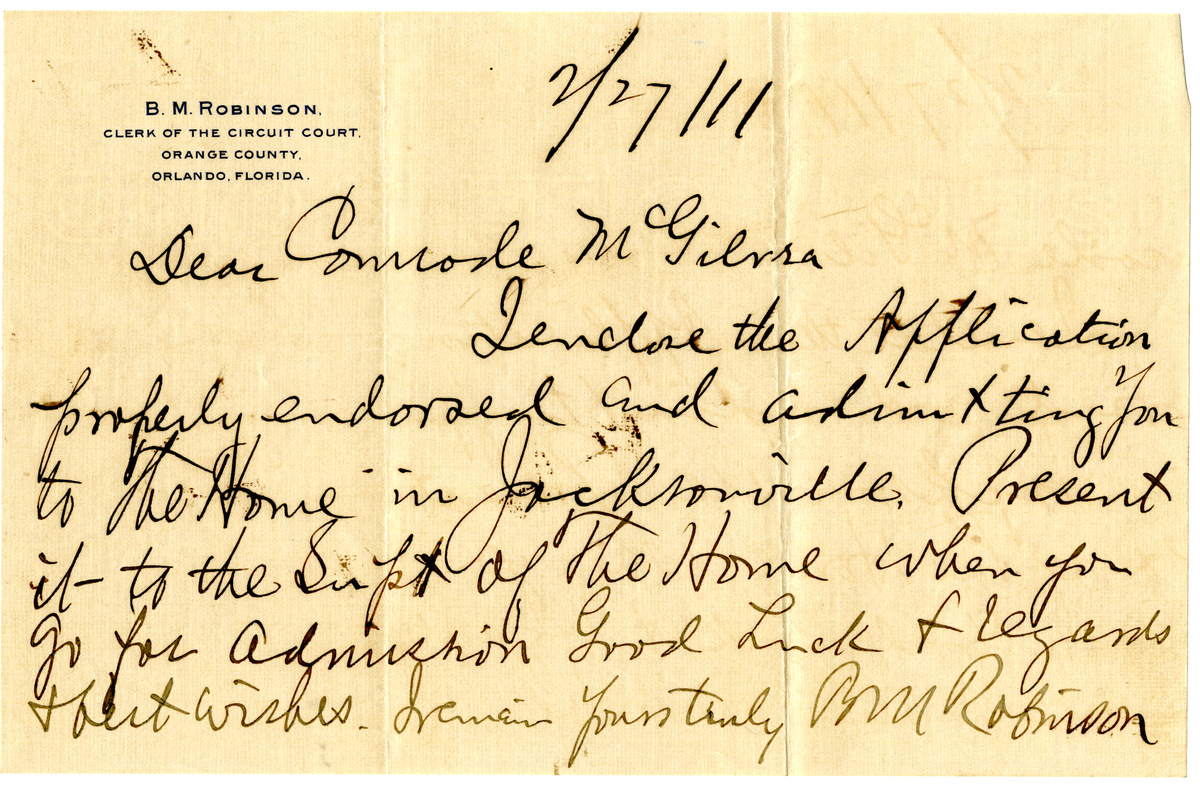 B. M. ROBINSON,
CLERK OF THE CIRCUIT COURT,
ORANGE COUNTY,
ORLANDO, FLORIDA.
2/27/11
Dear Comrade McGilvra
I enclose the Application
properly endorsed and admitting You
to The Home in Jacksonville. Present
it to the Supt of The Home when you
go for Admission Good Luck & regards
& best wishes. I remain Yours truly B M Robinson